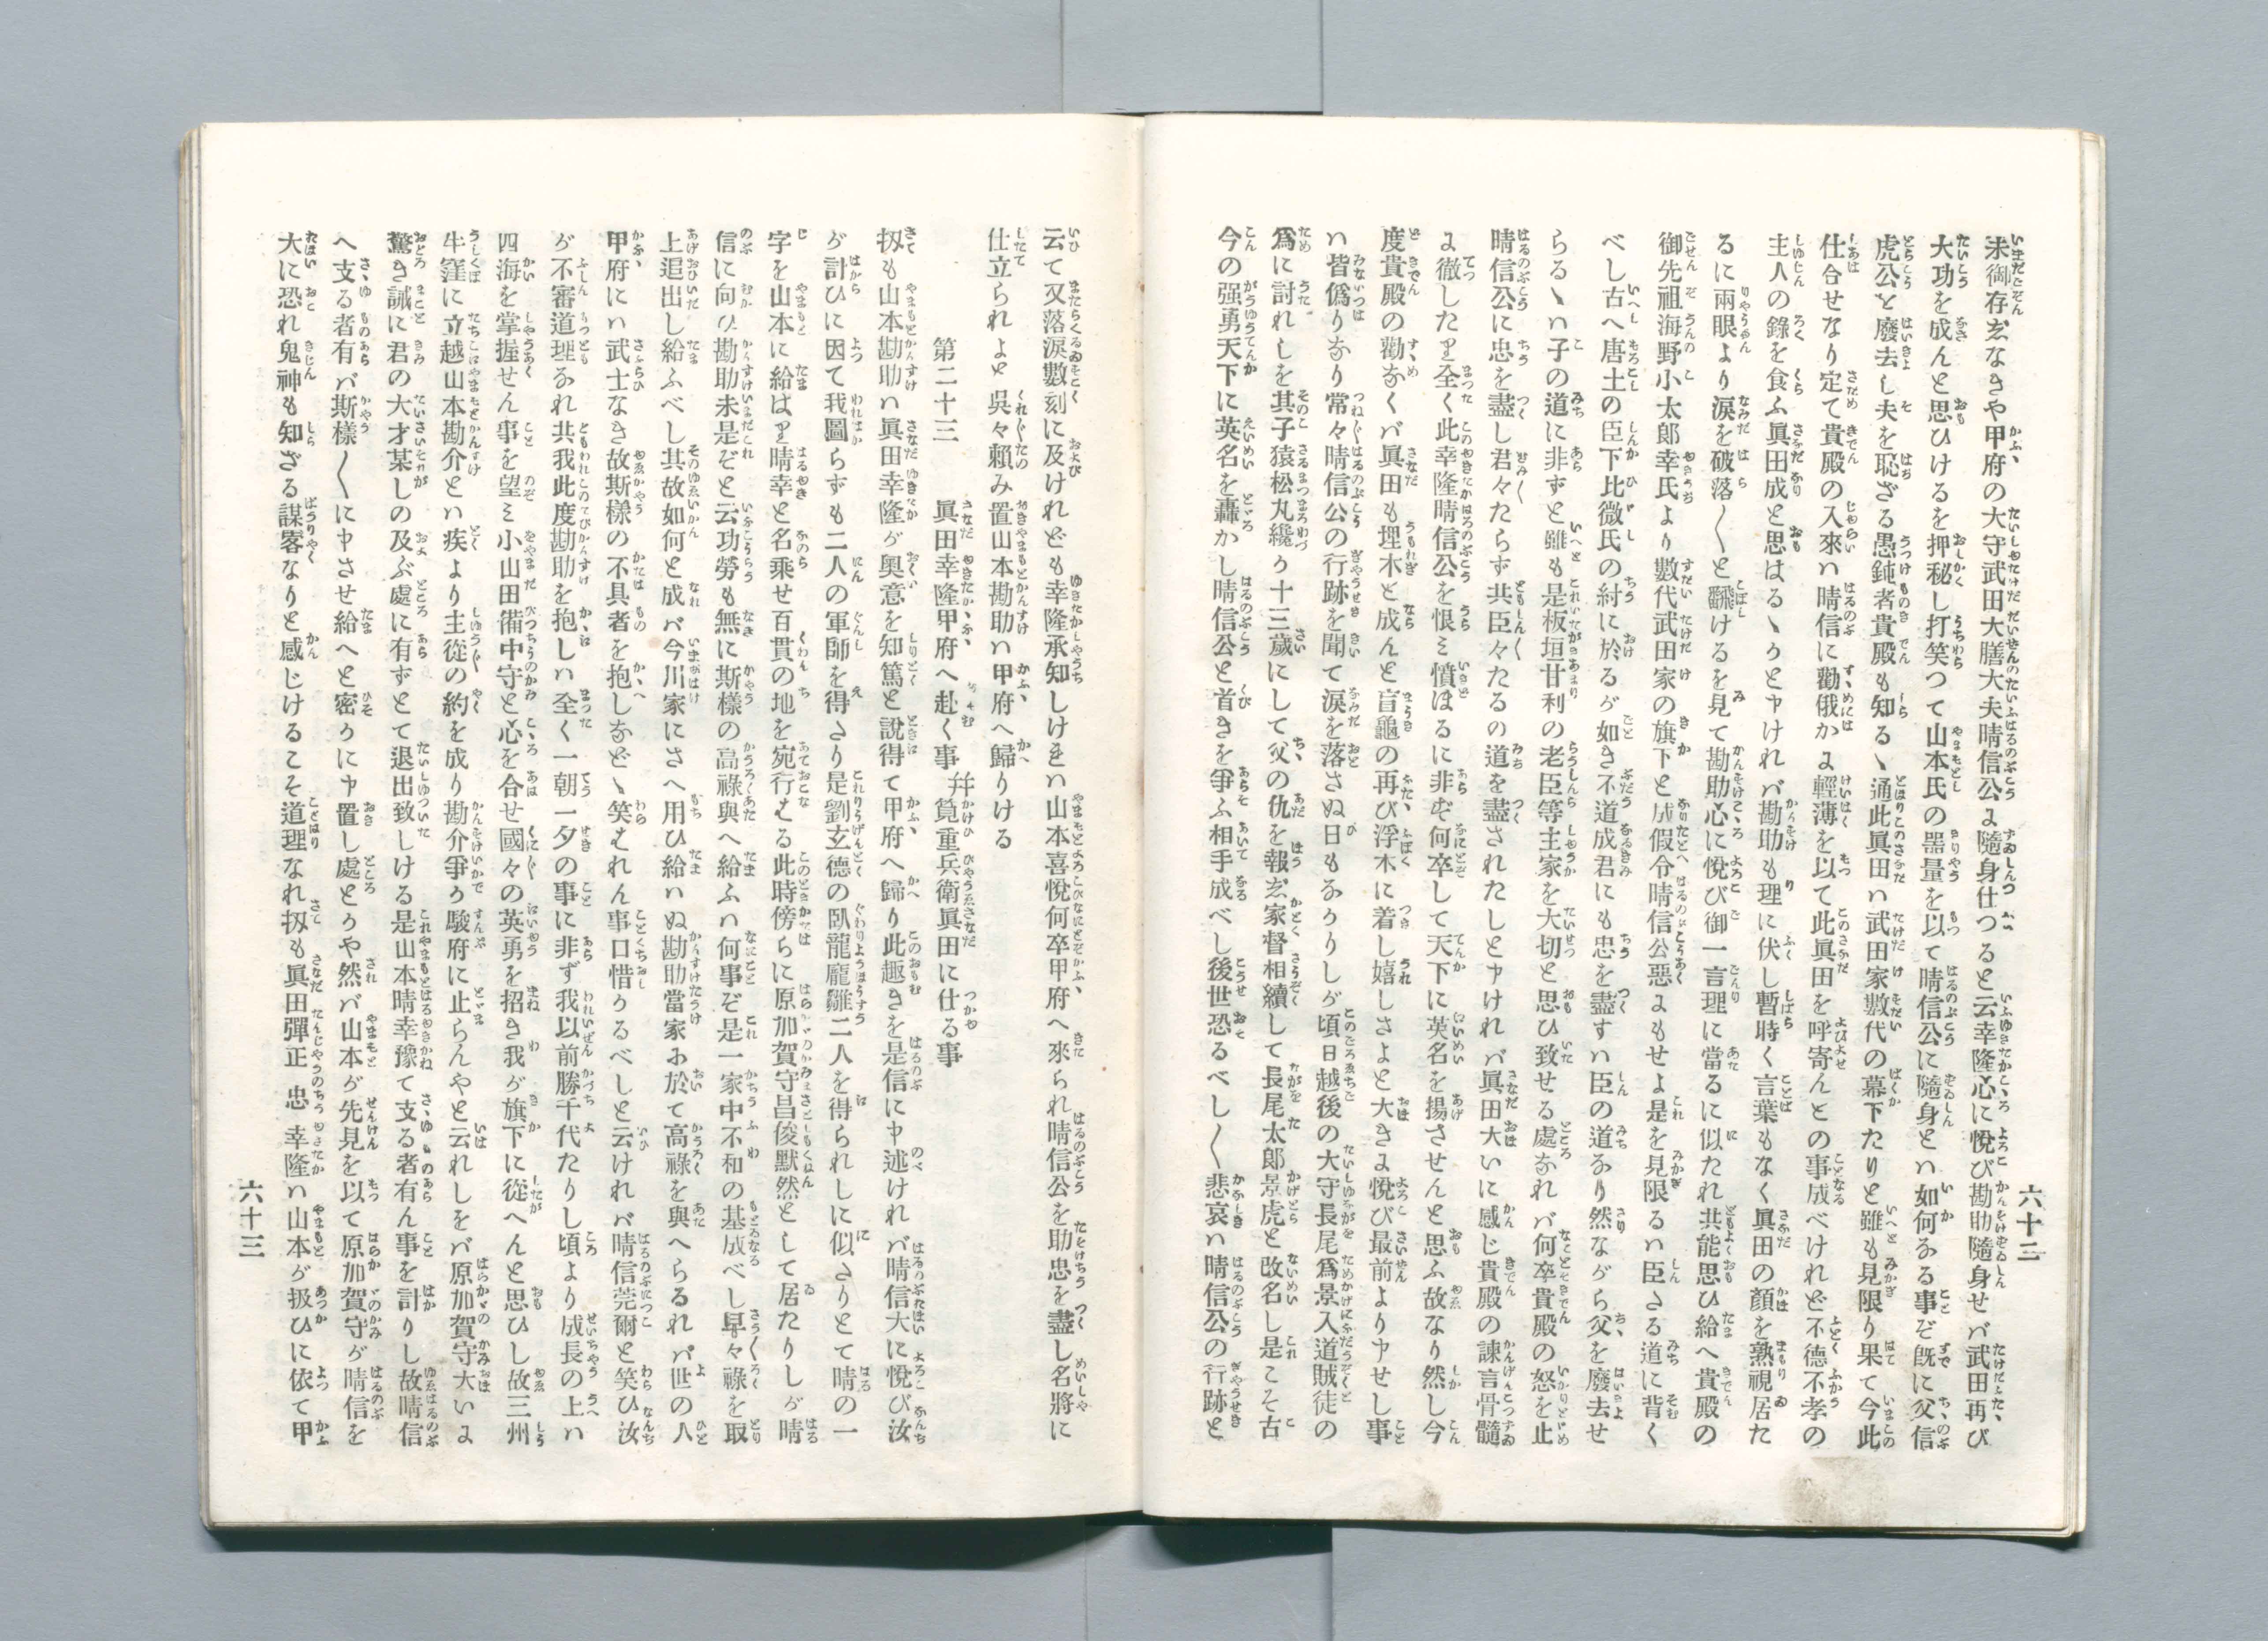 未御存なきや甲府の大守武田大膳大夫晴信公に隨身仕つると云幸隆心に悅び勘助隨身せバ武田再び
大功を成んと思ひけるを押秘し打笑つて山本氏の器量を以て晴信公に隨身とハ如何なる事ぞ既に父信
虎公と廢去し夫を恥ざる愚鈍者貴殿も知るゝ通此眞田ハ武田家數代の幕下たりと雖も見限り果て今此
仕合せなり定て貴殿の入來ハ晴信に勸俄かに輕薄を以て此眞田を呼寄んとの事成べけれど不德不孝の
主人の錄を食ふ眞田成と思はるゝかと申けれバ勘助も理に伏し暫時く言葉もなく眞田の顏を熟視居た
るに兩眼より淚を破落〳〵と飜けるを見て勘助心に悅び御一言理に當るに似たれ共能思ひ給へ貴殿の
御先祖海野小太郎幸氏より數代武田家の旗下と成假令晴信公惡にもせよ是を見限るハ臣たる道に背く
べし古へ唐土の臣下比微氏の紂に於るが如き不道成君にも忠を盡すハ臣の道なり然ながら父を廢去せ
らるゝハ子の道に非ずと雖も是板垣甘利の老臣等主家を大切と思ひ致せる處なれバ何卒貴殿の怒を止
晴信公に忠を盡し君々たらず共臣々たるの道を盡されたしと申けれバ眞田大いに感じ貴殿の諫言骨髓
に徹したり全く此幸隆晴信公を恨ミ憤ほるに非ず何卒して天下に英名を揚させんと思ふ故なり然し今
度貴殿の勸なくバ眞田も埋木と成んと盲龜の再び浮木に着し嬉しさよと大きに悅び最前より申せし事
ハ皆僞りなり常々晴信公の行跡を聞て淚を落さぬ日もなかりしが頃日越後の大守長尾爲景入道賊徒の
爲に討れしを其子猿松丸纔か十三歲にして父の仇を報玄家督相續して長尾太郎景虎と改名し是こそ古
今の强勇天下に英名を轟かし晴信公と首きを爭ふ相手成べし後世恐るべし〳〵悲哀ハ晴信公の行跡と
六十二
云て又落淚數刻に及けれども幸隆承知しけれハ山本喜悅何卒甲府へ來られ晴信公を助忠を盡し名將に
仕立られよと吳々賴み置山本勘助ハ甲府へ歸りける
第二十三　眞田幸隆甲府へ赴く事　幷　筧重兵衛眞田に仕る事
扨も山本勘助ハ眞田幸隆が奧意を知篤と說得て甲府へ歸り此趣きを是信に申述けれバ晴信大に悅び汝
が計ひに因て我圖らずも二人の軍師を得さり是劉玄德の臥龍龐雛二人を得られしに似さりとて晴の一
字を山本に給はり晴幸と名乘せ百貫の地を宛行ける此時傍らに原加賀守昌俊默然として居たりしが晴
信に向ひ勘助未是ぞと云功勞も無に斯樣の高祿與へ給ふハ何事ぞ是一家中不和の基成べし早々祿を取
上追出し給ふべし其故如何と成バ今川家にさへ用ひ給ハぬ勘助當家に於て高祿を與へらるれバ世の人
甲府にハ武士なき故斯樣の不具者を抱しなどゝ笑ハれん事口惜かるべしと云けれバ晴信莞爾と笑ひ汝
が不審道理なれ共我此度勘助を抱しハ全く一朝一夕の事に非ず我以前勝千代たりし頃より成長の上ハ
四海を掌握せん事を望ミ小山田備中守と心を合せ國々の英勇を招き我が旗下に從へんと思ひし故三州
牛窪に立越山本勘介とハ疾より主從の約を成り勘介爭か駿府に止らんやと云れしをバ原加賀守大いに
驚き誠に君の大才某しの及ぶ處に有ずとて退出致しける是山本晴幸豫て支る者有ん事を計りし故晴信
へ支る者有バ斯樣〳〵に申させ給へと密かに申置し處とかや然バ山本が先見を以て原加賀守が晴信を
大に恐れ鬼神も知ざる謀畧なりと感じけるこそ道理なれ扨も眞田彈正忠幸隆ハ山本が扱ひに依て甲
六十三